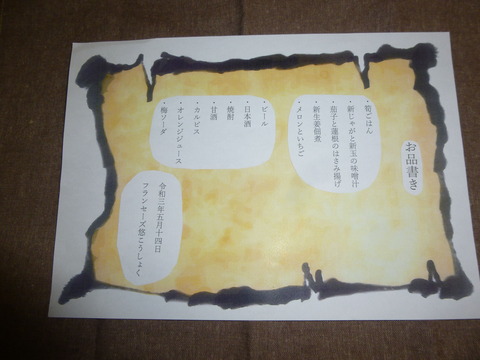 お品書き
・筍ごはん
・新じゃがと新玉の味噌汁
・茄子と蓮根のはさみ揚げ
・新生姜佃煮
・メロンといちご
・ビール
・日本酒
・焼酎
・甘酒
・カルピス
・オレンジジュース
・梅ソーダ
令和三年五月十四日
フランセーズ悠こうしょく